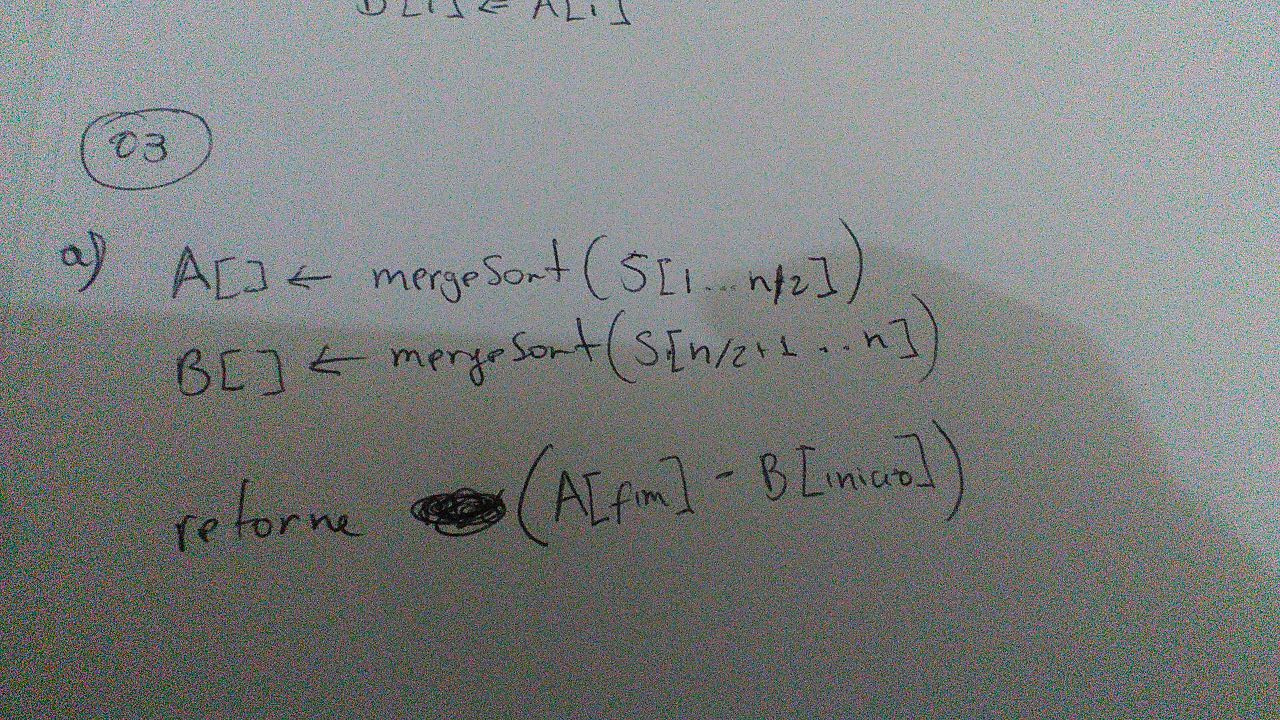 B[i] ← A[i]
03
a) A[] ← mergeSort(S[1...n/2])
B[] ← mergeSort(S[n/2+1...n])
retorne (A[fim] - B[inicio])